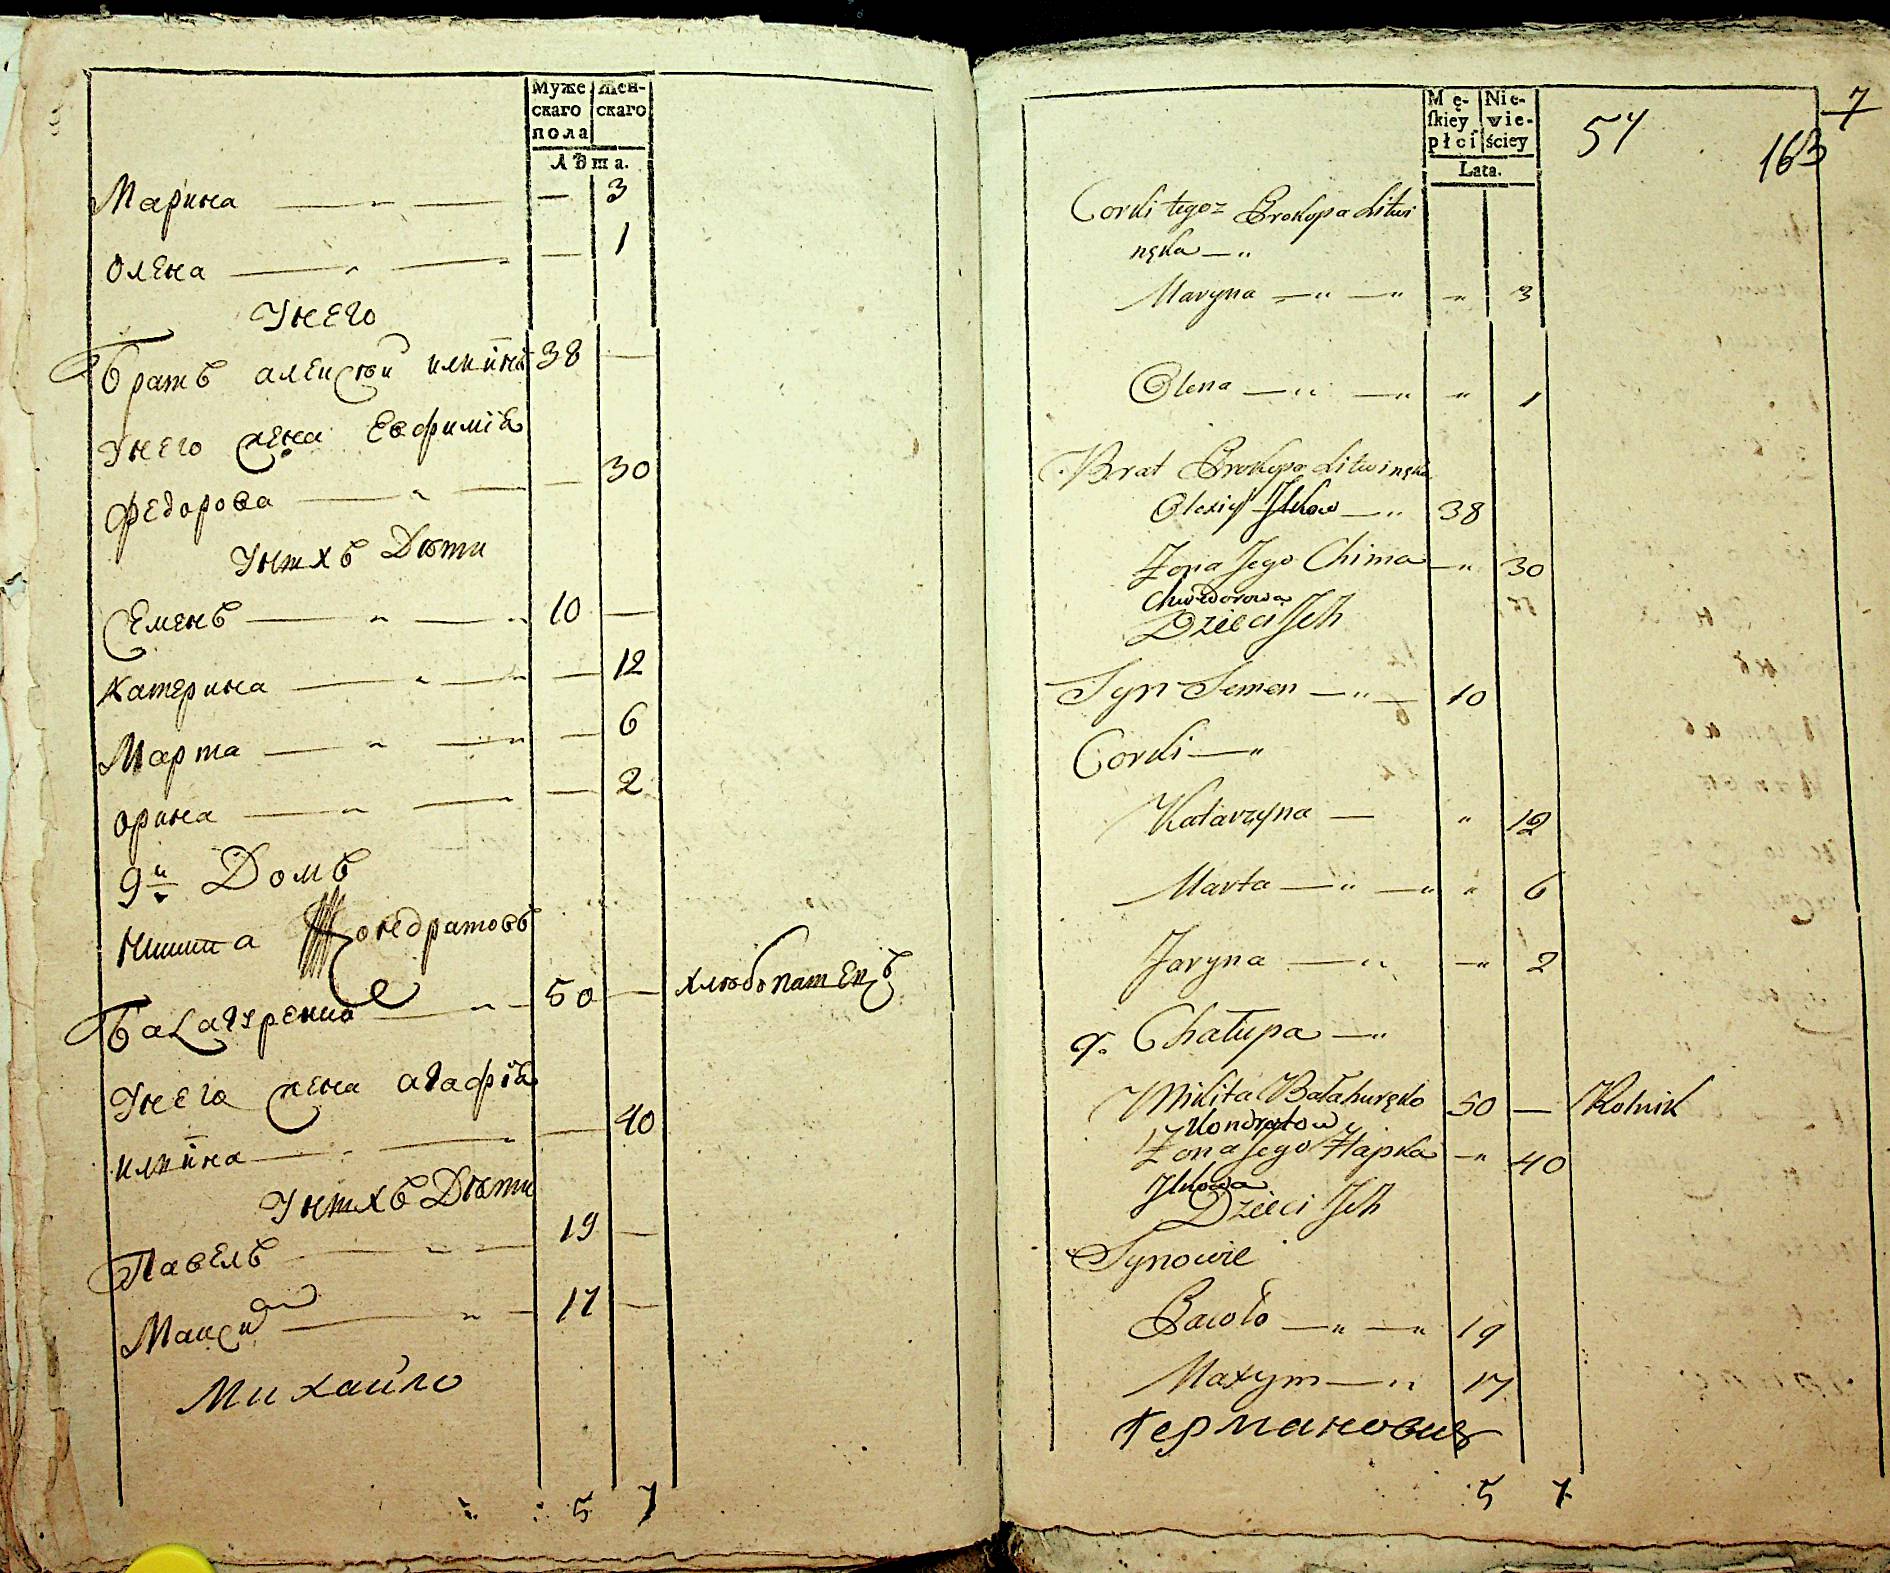 Муже
скаго
пола
Жен-
скаго
Лѣта.
Марина — „ — — 3
Олена — „ — — 1
Унего
братъ алеиѯѣй илиинъ 38 —
Унего жена Евфимія
федорова — „ — — 30
Унихъ Дѣти
Семенъ — „ — 10 —
Катерина — „ — — 12
Марта — „ — — 6
орина — „ — — 2
9й Домъ
Никита Кондратовъ
балагуренко — „ — 50 — хлѣбопашецъ
Унего жена агафія
илиина — „ — — 40
Унихъ Дѣти
Павелъ — „ — 19 —
Максим — „ — 17 —
Михайло
5 7
Mę-
ſkiey
płci
Nie-
wie-
ściey
Lata.
54
7
163
Corki tegoz Prokopa Litwi
nęka — „
Maryna — „ — „ „ 3
Olena — „ — „ „ 1
Brat Prokopa Litwinęka
Olexiy Ilkow — „ 38
Żona Jego Chima — „ 30
Chwedorowa
Dzieci Ich
Syn Semen — „ 10
Corki — „
Katarzyna — „ 12
Marta — „ — „ „ 6
Jaryna — „ — „ 2
9. Chałupa — „
Mikita Bałahuręko 50 — Rolnik
Kondratow
Żona Jego Hapka — „ 40
Ilkowa
Dzieci Ich
Synowie
Pawło — „ — „ 19
Maxym — „ 17
Германович
5 7